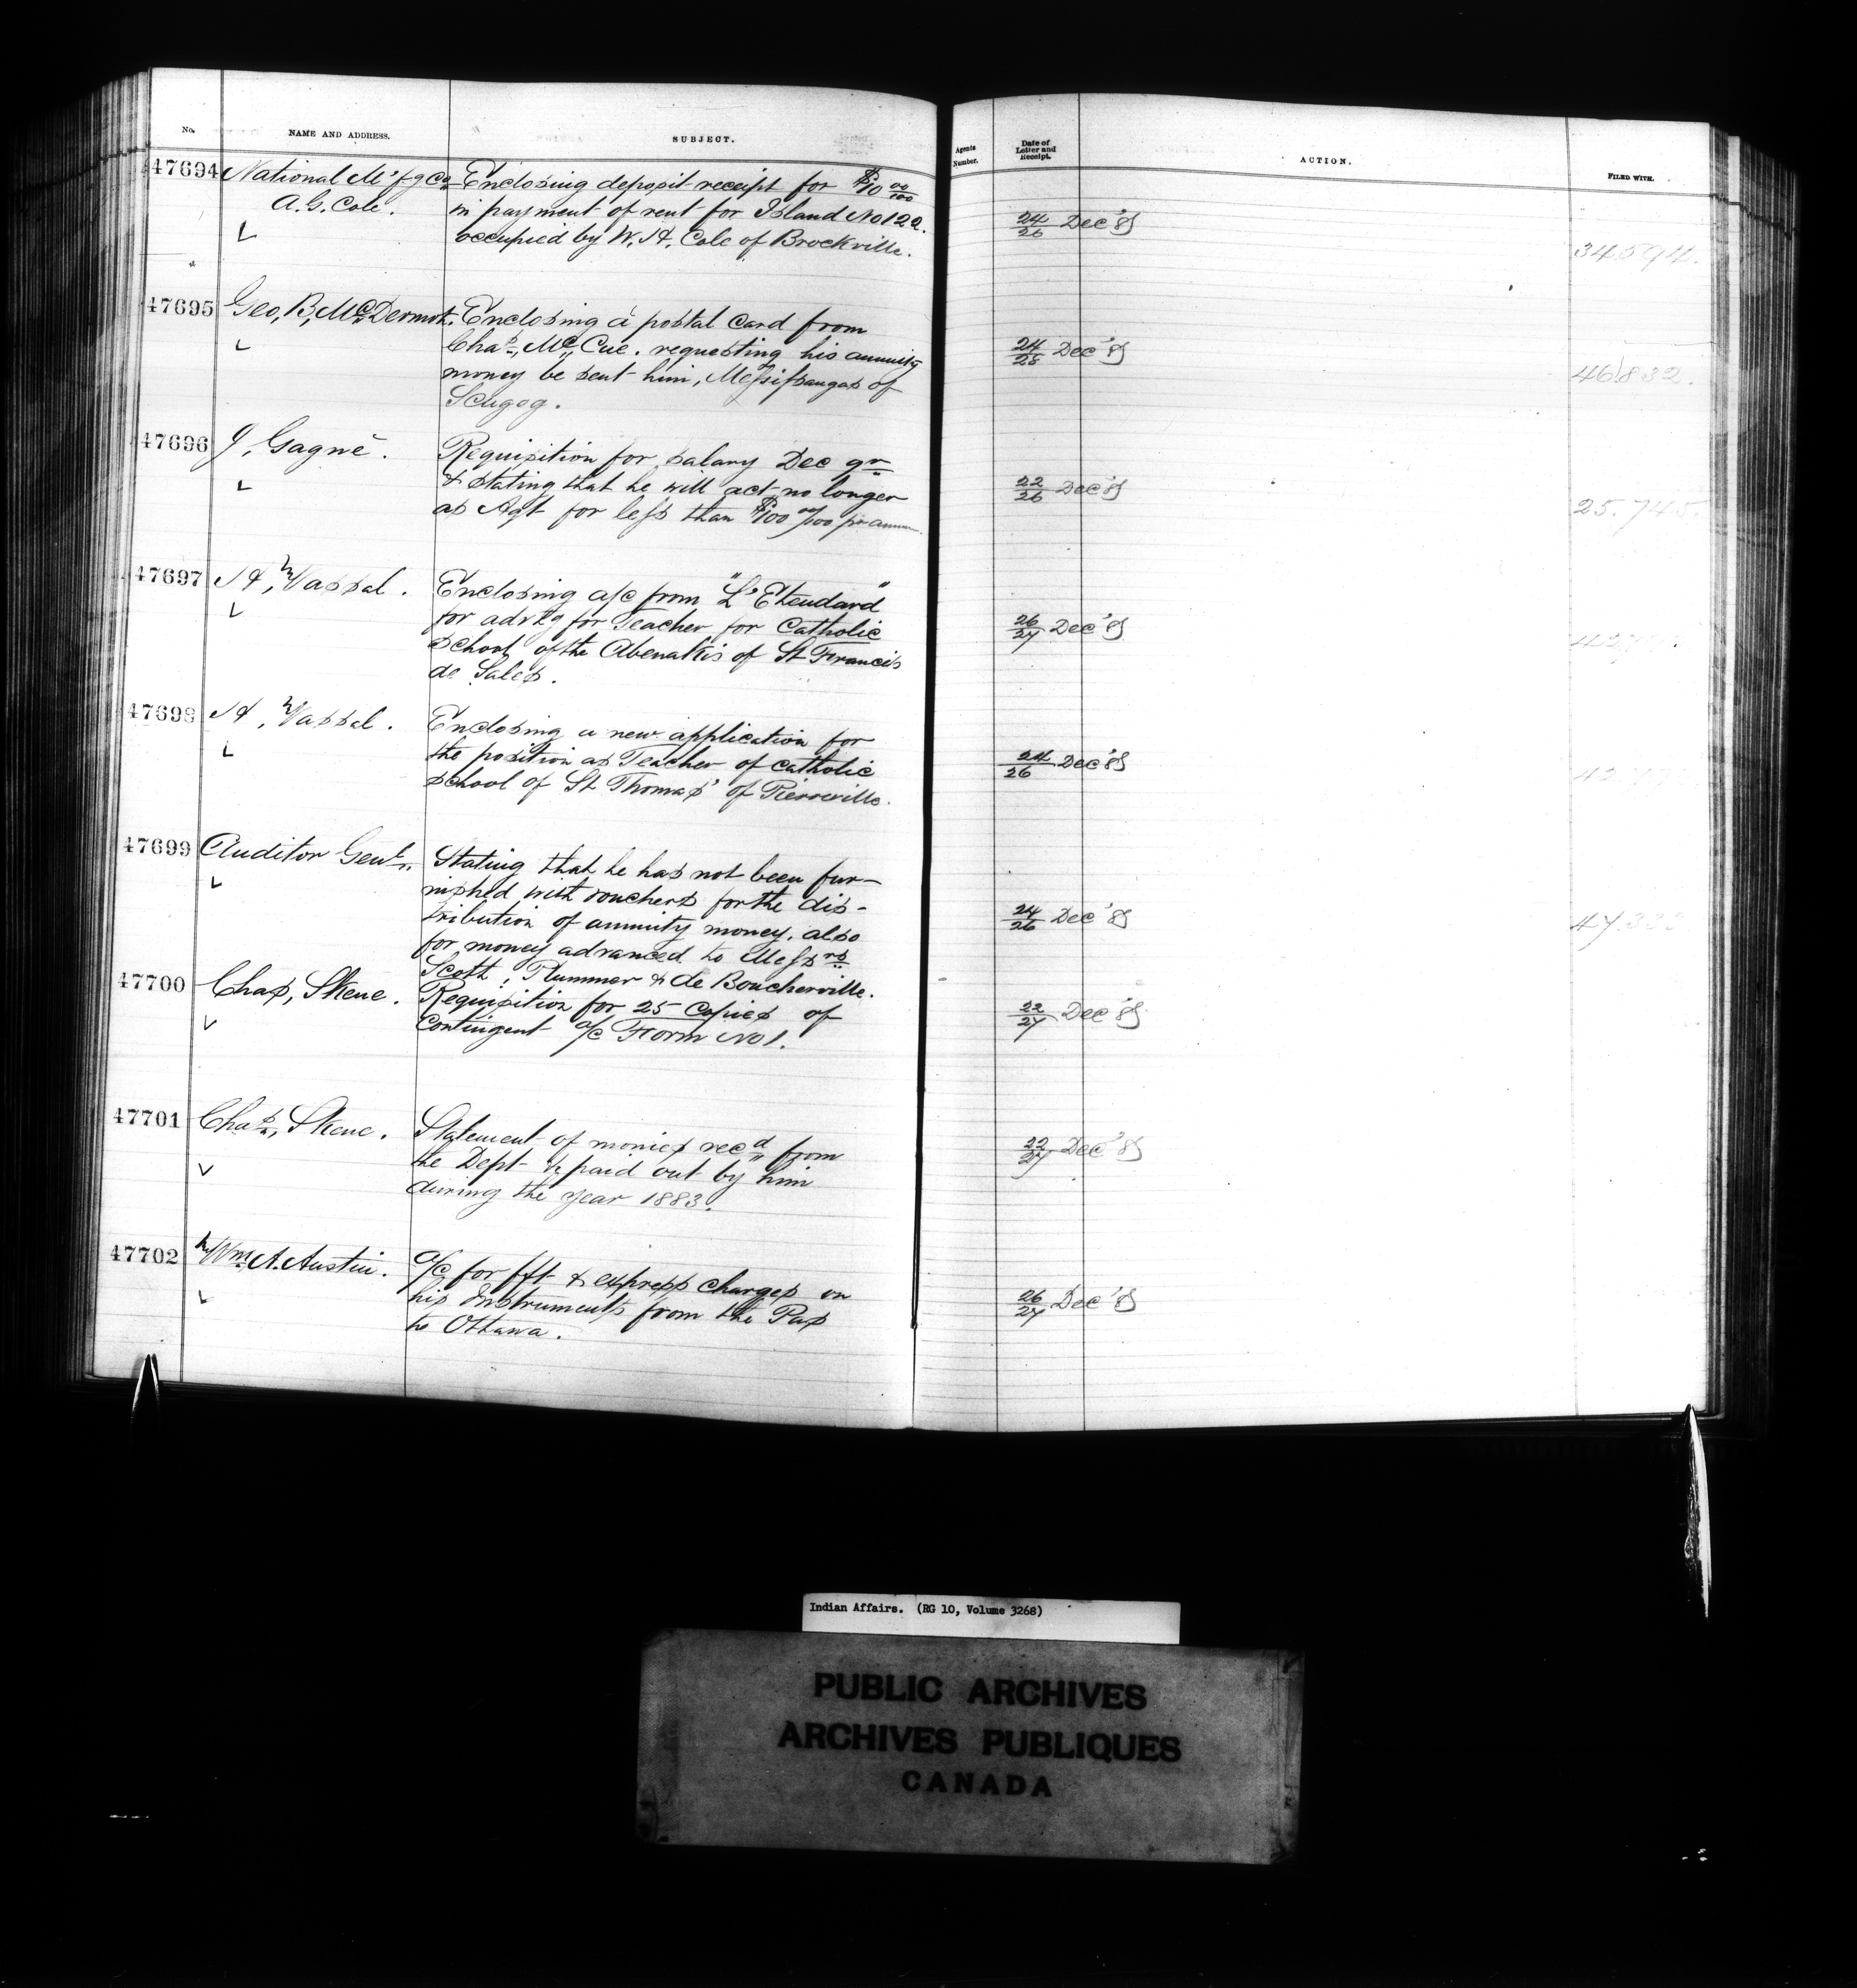 No. NAME AND ADDRESS. SUBJECT. Agents Number. Date of Letter and Receipt. ACTION. FILED WITH.
47694 National M'f'g Co. Enclosing deposit receipt for $10 00/100
A. G. Cole. in payment of rent for Island No 122.
occupied by W. H. Cole of Brockville.
24/26 Dec '85
34594.
47695 Geo, B, McDermot. Enclosing a postal card from
Chas, McCue. requesting his annuity
money be sent him, Messissaugas of
Scugog.
24/28 Dec '85
46832.
47696 J, Gagné. Requisition for salary Dec qr
& stating that he will act no longer
as Agt for less than $100 00/100 pr annum
22/26 Dec '85
25.745.
47697 H, Vassal. Enclosing a/c from "L'Etendard"
for advtg for Teacher for Catholic
School of the Abenakis of St Francis
de Sales.
26/27 Dec '85
47698 H, Vassal. Enclosing a new application for
the position as Teacher of Catholic
school of St Thomas' of Pierreville.
24/26 Dec '85
47699 Auditor Genl. Stating that he has not been fur-
nished with vouchers for the dis-
tribution of annuity money. also
for money advanced to Messrs
Scott, Plummer & de Boucherville.
24/26 Dec '85
47700 Chas, Skene. Requisition for 25 Copies of
Contingent a/c Form No 1.
22/27 Dec '85
47701 Chas, Skene. Statement of monies recd from
the Dept & paid out by him
during the year 1883.
22/27 Dec '85
47702 Wm A. Austin. a/c for fft & express charges on
his Instruments from the Pas
to Ottawa.
26/27 Dec '85
Indian Affairs. (RG 10, Volume 3268)
PUBLIC ARCHIVES
ARCHIVES PUBLIQUES
CANADA